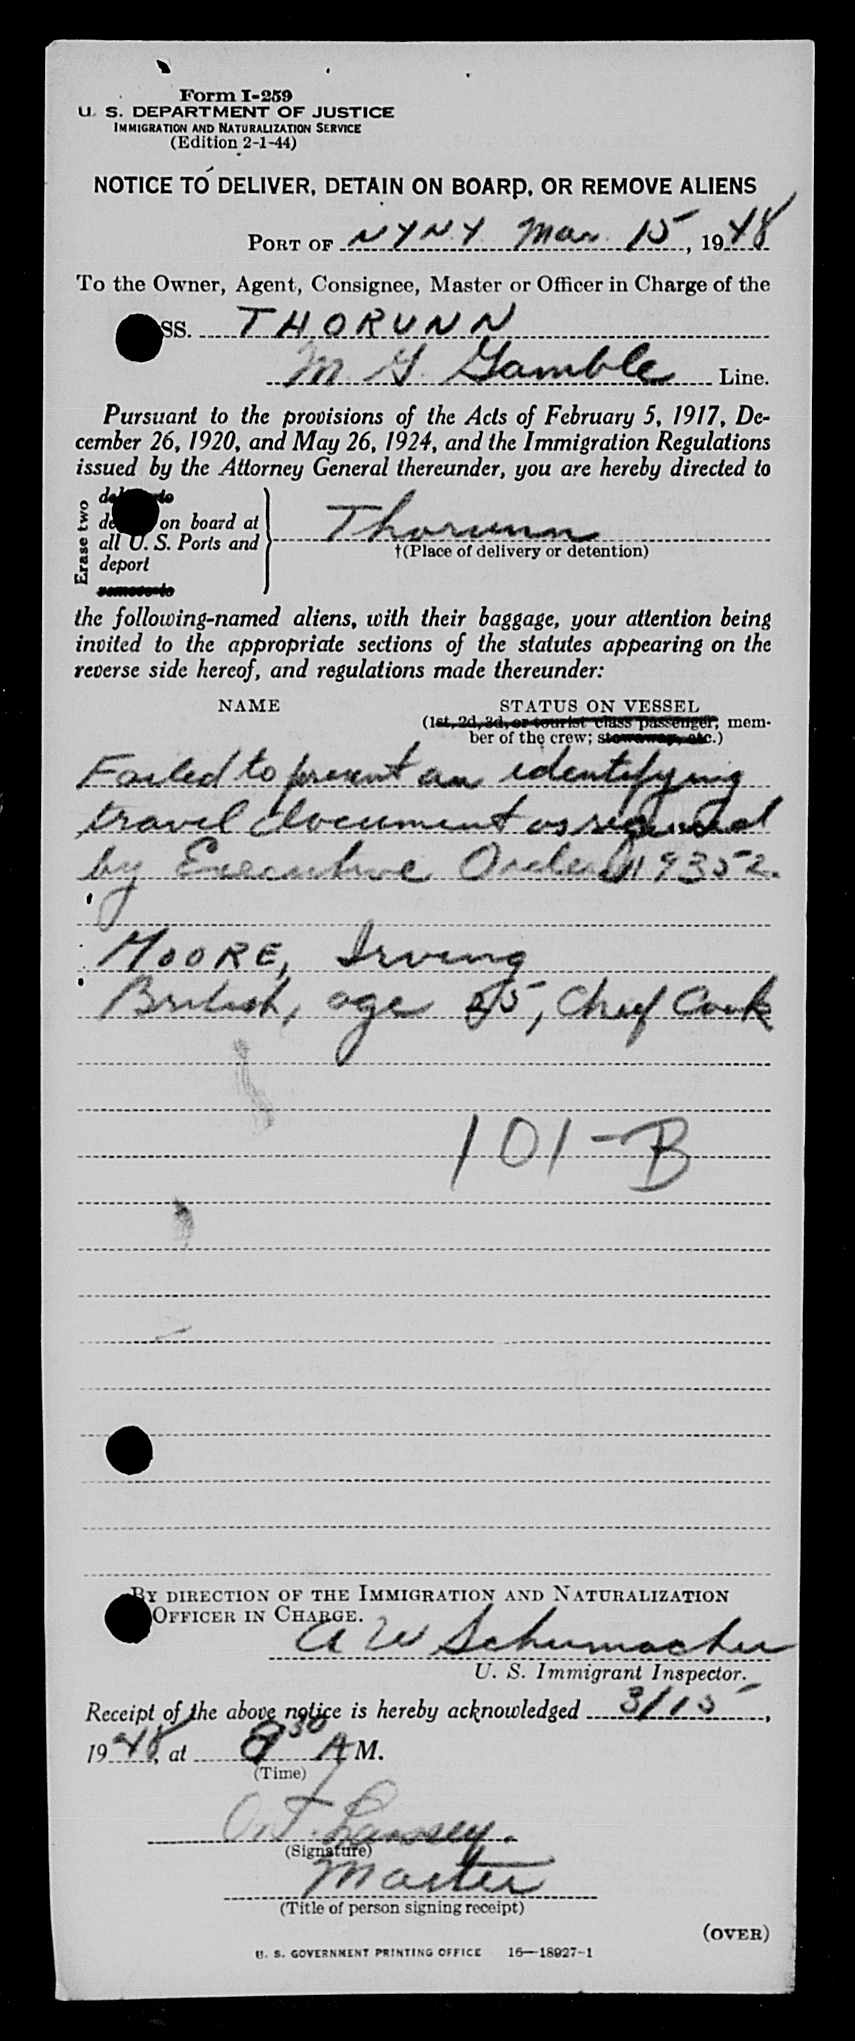 Form I-259
U. S. DEPARTMENT OF JUSTICE
IMMIGRATION AND NATURALIZATION SERVICE
(Edition 2-1-44)
NOTICE TO DELIVER, DETAIN ON BOARD, OR REMOVE ALIENS
PORT OF NYNY Mar. 15, 1948
To the Owner, Agent, Consignee, Master or Officer in Charge of the
SS. THORUNN
M. G. Gamble Line.
Pursuant to the provisions of the Acts of February 5, 1917, De-
cember 26, 1920, and May 26, 1924, and the Immigration Regulations
issued by the Attorney General thereunder, you are hereby directed to
Erase two
on board at
all U. S. Ports and
deport
Thorunn
†(Place of delivery or detention)
the following-named aliens, with their baggage, your attention being
invited to the appropriate sections of the statutes appearing on the
reverse side hereof, and regulations made thereunder:
NAME STATUS ON VESSEL
(1st, 2d, 3d, or tourist class passenger; mem-
ber of the crew; stowaway, etc.)
Failed to present an identifying
travel document as required
by Executive Order 9352.
MOORE, Irving
British, age 25, Chief Cook
101-B
BY DIRECTION OF THE IMMIGRATION AND NATURALIZATION
OFFICER IN CHARGE.
A W Schumacher
U. S. Immigrant Inspector.
Receipt of the above notice is hereby acknowledged 3/15,
1948, at 8 30 A M.
(Time)
(Signature)
Master
(Title of person signing receipt)
(OVER)
U. S. GOVERNMENT PRINTING OFFICE 16—18927-1